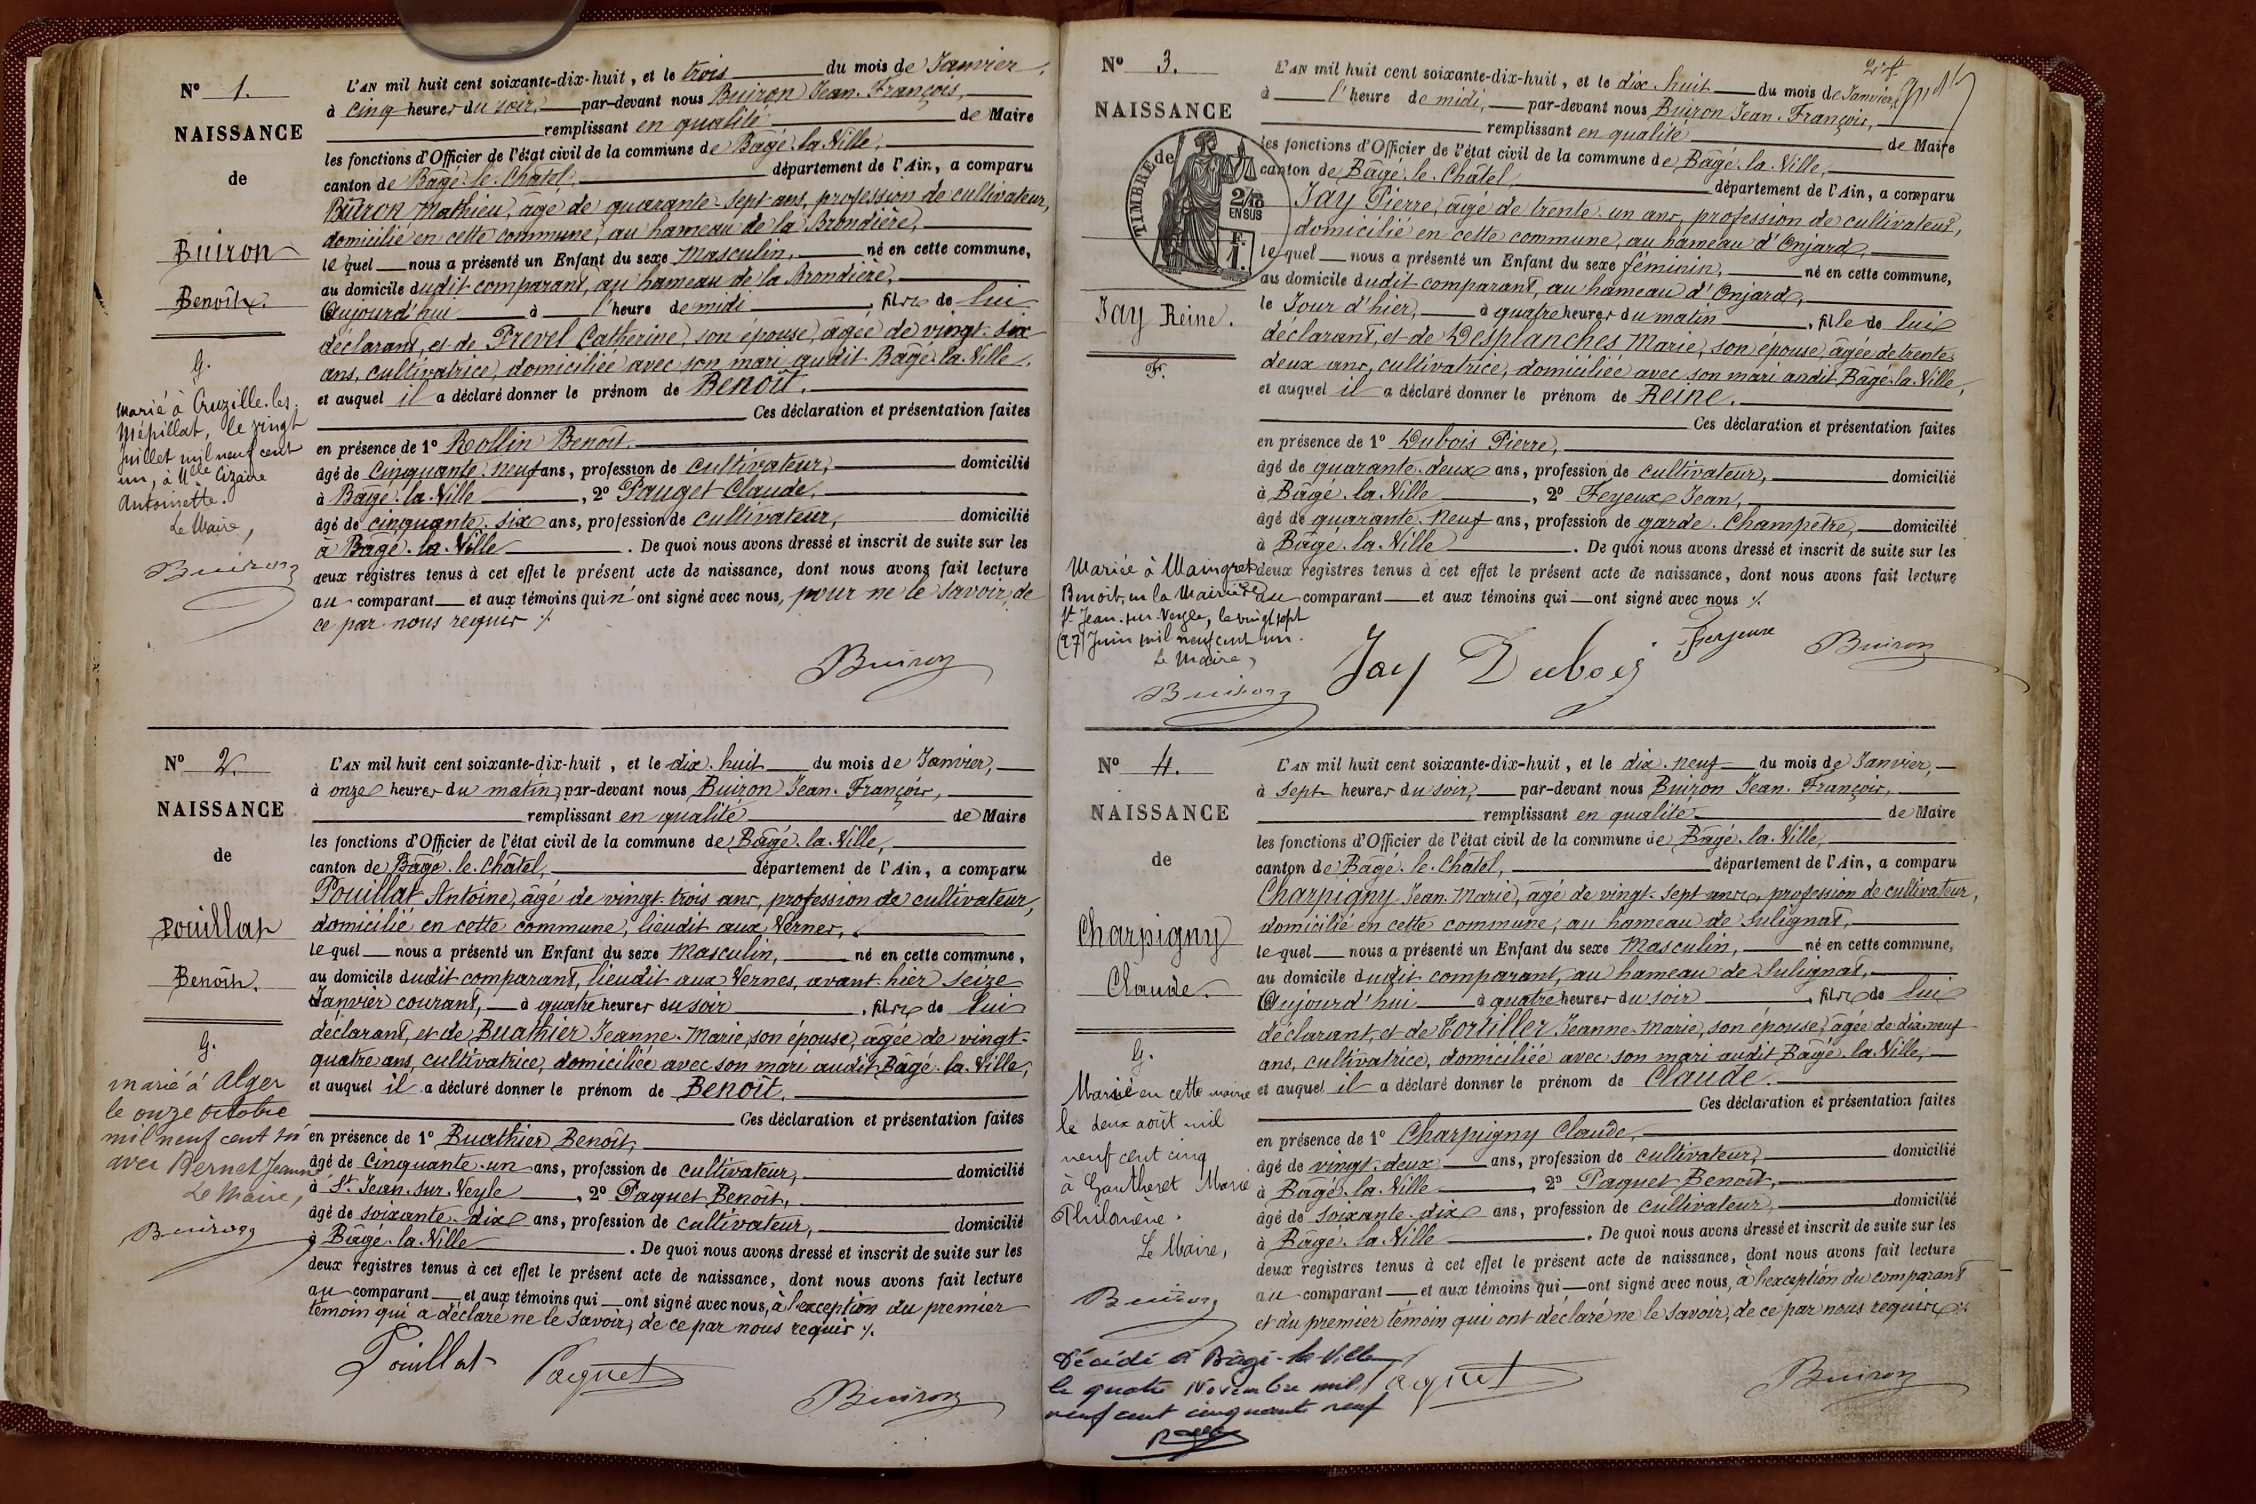 N° 1.
NAISSANCE
de
Buiron
Benoît.
G.
Marié à Cruzille-les-
Mépillat, le vingt
Juillet mil neuf cent
un, à Mlle Cizaire
Antoinette.
Le Maire,
Buiron
L'AN mil huit cent soixante-dix-huit, et le trois du mois de Janvier,
à cinq heures du soir, par-devant nous Buiron Jean-François,
remplissant en qualité de Maire
les fonctions d'Officier de l'état civil de la commune de Bâgé-la-Ville,
canton de Bâgé-le-Châtel, département de l'Ain, a comparu
Buiron Mathieu, âgé de quarante-sept ans, profession de cultivateur,
domicilié en cette commune, au hameau de la Brondière,
lequel nous a présenté un Enfant du sexe masculin, né en cette commune,
au domicile dudit comparant, au hameau de la Brondière,
Aujourd'hui à l'heure de midi, fils de lui
déclarant, et de Prevel Catherine, son épouse, âgée de vingt-six
ans, cultivatrice, domiciliée avec son mari audit Bâgé-la-Ville.
et auquel il a déclaré donner le prénom de Benoît.
Ces déclaration et présentation faites
en présence de 1° Rollin Benoît,
âgé de cinquante-neuf ans, profession de cultivateur, domicilié
à Bâgé-la-Ville, 2° Pauget Claude,
âgé de cinquante-six ans, profession de cultivateur, domicilié
à Bâgé-la-Ville. De quoi nous avons dressé et inscrit de suite sur les
deux registres tenus à cet effet le présent acte de naissance, dont nous avons fait lecture
au comparant et aux témoins qui n'ont signé avec nous, pour ne le savoir, de
ce par nous requis ./.
Buiron
N° 2.
NAISSANCE
de
Pouillat
Benoît.
G.
marié à Alger
le onze octobre
mil neuf cent
avec Bernet Jeanne
Le Maire,
Buiron
L'AN mil huit cent soixante-dix-huit, et le dix-huit du mois de Janvier,
à onze heures du matin, par-devant nous Buiron Jean-François,
remplissant en qualité de Maire
les fonctions d'Officier de l'état civil de la commune de Bâgé-la-Ville,
canton de Bâgé-le-Châtel, département de l'Ain, a comparu
Pouillat Antoine, âgé de vingt-trois ans, profession de cultivateur,
domicilié en cette commune, lieudit aux Vernes,
lequel nous a présenté un Enfant du sexe masculin, né en cette commune,
au domicile dudit comparant, lieudit aux Vernes, avant-hier seize
Janvier courant, à quatre heures du soir, fils de lui
déclarant, et de Buathier Jeanne-Marie, son épouse, âgée de vingt-
quatre ans, cultivatrice, domiciliée avec son mari audit Bâgé-la-Ville,
et auquel il a déclaré donner le prénom de Benoît.
Ces déclaration et présentation faites
en présence de 1° Buathier Benoît,
âgé de cinquante-un ans, profession de cultivateur, domicilié
à St. Jean-sur-Veyle, 2° Paquet Benoît,
âgé de soixante-dix ans, profession de cultivateur, domicilié
à Bâgé-la-Ville. De quoi nous avons dressé et inscrit de suite sur les
deux registres tenus à cet effet le présent acte de naissance, dont nous avons fait lecture
au comparant et aux témoins qui ont signé avec nous, à l'exception du premier
témoin qui a déclaré ne le savoir, de ce par nous requis ./.
Pouillat Paquet
Buiron
N° 3.
NAISSANCE
TIMBRE de
2/10
EN SUS
F.
1.
Jay Reine.
F.
Mariée à Maingret
Benoît, en la Mairie de
St. Jean-sur-Veyle, le vingt sept
(27) Juin mil neuf cent un.
Le Maire,
Buiron
L'AN mil huit cent soixante-dix-huit, et le dix-huit du mois de Janvier,
à l'heure de midi, par-devant nous Buiron Jean-François,
remplissant en qualité de Maire
les fonctions d'Officier de l'état civil de la commune de Bâgé-la-Ville,
canton de Bâgé-le-Châtel, département de l'Ain, a comparu
Jay Pierre, âgé de trente-un ans, profession de cultivateur,
domicilié en cette commune, au hameau d'Onjard,
lequel nous a présenté un Enfant du sexe féminin, né en cette commune,
au domicile dudit comparant, au hameau d'Onjard,
le Jour d'hier, à quatre heures du matin, fille de lui
déclarant, et de Desplanches Marie, son épouse, âgée de trente-
deux ans, cultivatrice, domiciliée avec son mari audit Bâgé-la-Ville,
et auquel il a déclaré donner le prénom de Reine.
Ces déclaration et présentation faites
en présence de 1° Dubois Pierre,
âgé de quarante-deux ans, profession de cultivateur, domicilié
à Bâgé-la-Ville, 2° Feyeux Jean,
âgé de quarante-neuf ans, profession de garde-champêtre, domicilié
à Bâgé-la-Ville. De quoi nous avons dressé et inscrit de suite sur les
deux registres tenus à cet effet le présent acte de naissance, dont nous avons fait lecture
au comparant et aux témoins qui ont signé avec nous ./.
Jay Dubois Feyeux Buiron
N° 4.
NAISSANCE
de
Charpigny
Claude.
G.
Marié en cette mairie
le deux août mil
neuf cent cinq
à Gautheret Marie
Philomène.
Le Maire,
Buiron
Décédé à Bâgé-la-Ville
le quatre Novembre mil
neuf cent cinquante neuf
L'AN mil huit cent soixante-dix-huit, et le dix-neuf du mois de Janvier,
à sept heures du soir, par-devant nous Buiron Jean-François,
remplissant en qualité de Maire
les fonctions d'Officier de l'état civil de la commune de Bâgé-la-Ville,
canton de Bâgé-le-Châtel, département de l'Ain, a comparu
Charpigny Jean-Marie, âgé de vingt-sept ans, profession de cultivateur,
domicilié en cette commune, au hameau de Lulignat,
lequel nous a présenté un Enfant du sexe masculin, né en cette commune,
au domicile dudit comparant, au hameau de Lulignat,
Aujourd'hui à quatre heures du soir, fils de lui
déclarant, et de Tortiller Jeanne-Marie, son épouse, âgée de dix-neuf
ans, cultivatrice, domiciliée avec son mari audit Bâgé-la-Ville,
et auquel il a déclaré donner le prénom de Claude.
Ces déclaration et présentation faites
en présence de 1° Charpigny Claude,
âgé de vingt-deux ans, profession de cultivateur, domicilié
à Bâgé-la-Ville, 2° Paquet Benoît,
âgé de soixante-dix ans, profession de cultivateur, domicilié
à Bâgé-la-Ville. De quoi nous avons dressé et inscrit de suite sur les
deux registres tenus à cet effet le présent acte de naissance, dont nous avons fait lecture
au comparant et aux témoins qui ont signé avec nous, à l'exception du comparant
et du premier témoin qui ont déclaré ne le savoir, de ce par nous requis ./.
Paquet Buiron